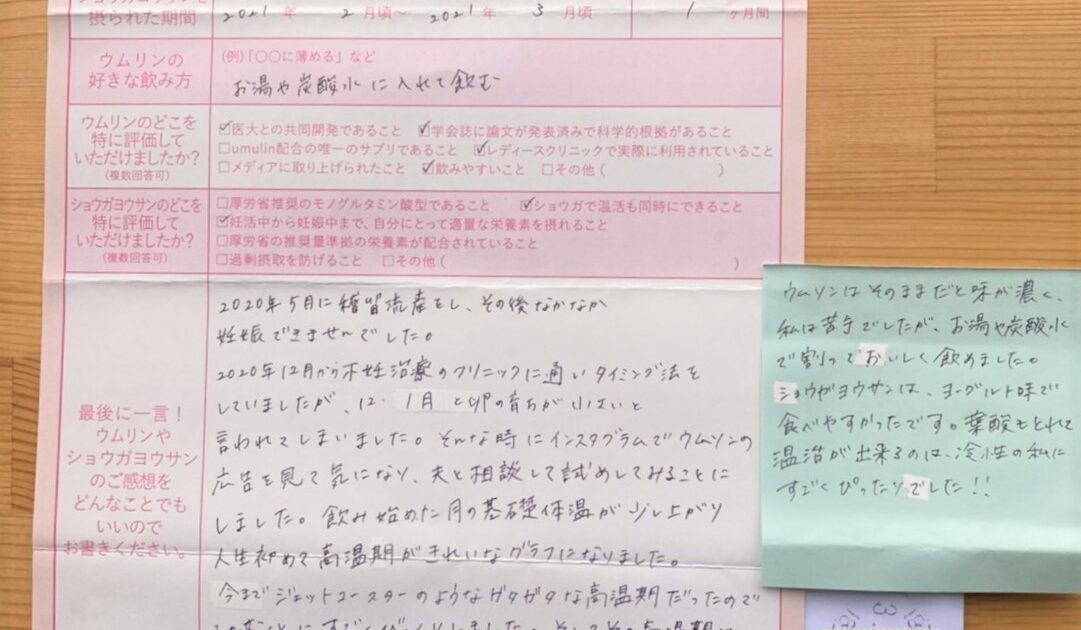 摂られた期間
2021 年 2 月頃〜 2021 年 3 月頃
1 ヶ月間
ウムリンの
好きな飲み方
(例)「〇〇に薄める」など
お湯や炭酸水に入れて飲む
ウムリンのどこを
特に評価して
いただけましたか?
(複数回答可)
☑医大との共同開発であること ☑学会誌に論文が発表済みで科学的根拠があること
□umulin配合の唯一のサプリであること ☑レディースクリニックで実際に利用されていること
□メディアに取り上げられたこと ☑飲みやすいこと □その他( )
ショウガヨウサンのどこを
特に評価して
いただけましたか?
(複数回答可)
□厚労省推奨のモノグルタミン酸型であること ☑ショウガで温活も同時にできること
☑妊活中から妊娠中まで、自分にとって適量な栄養素を摂れること
□厚労省の推奨量準拠の栄養素が配合されていること
□過剰摂取を防げること □その他( )
最後に一言!
ウムリンや
ショウガヨウサン
のご感想を
どんなことでも
いいので
お書きください。
2020年5月に稽留流産をし、その後なかなか
妊娠できませんでした。
2020年12月から不妊治療のクリニックに通いタイミング法を
していましたが、12、1月と卵の育ちが小さいと
言われてしまいました。そんな時にインスタグラムでウムリンの
広告を見て気になり、夫と相談して試めしてみることに
しました。飲み始めた月の基礎体温が少し上がり
人生初めて高温期がきれいなグラフになりました。
今までジェットコースターのようなガタガタな高温期だったので
ウムリンはそのままだと味が濃く、
私は苦手でしたが、お湯や炭酸水
で割っておいしく飲めました。
ショウガヨウサンは、ヨーグルト味で
食べやすかったです。葉酸もとれて
温活が出来るのは、冷性の私に
すごくぴったりでした!!